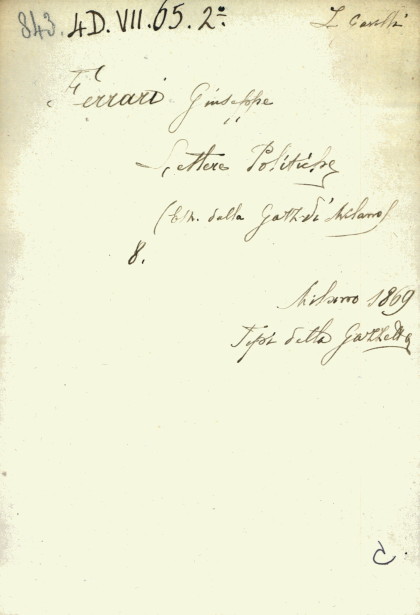 843. 4D. VII. 65. 2º
Ferrari Giuseppe
Lettere Politiche
(Estr. dalla Gazz. di Milano)
8.
Milano 1869
Tipi della Gazzetta
C.